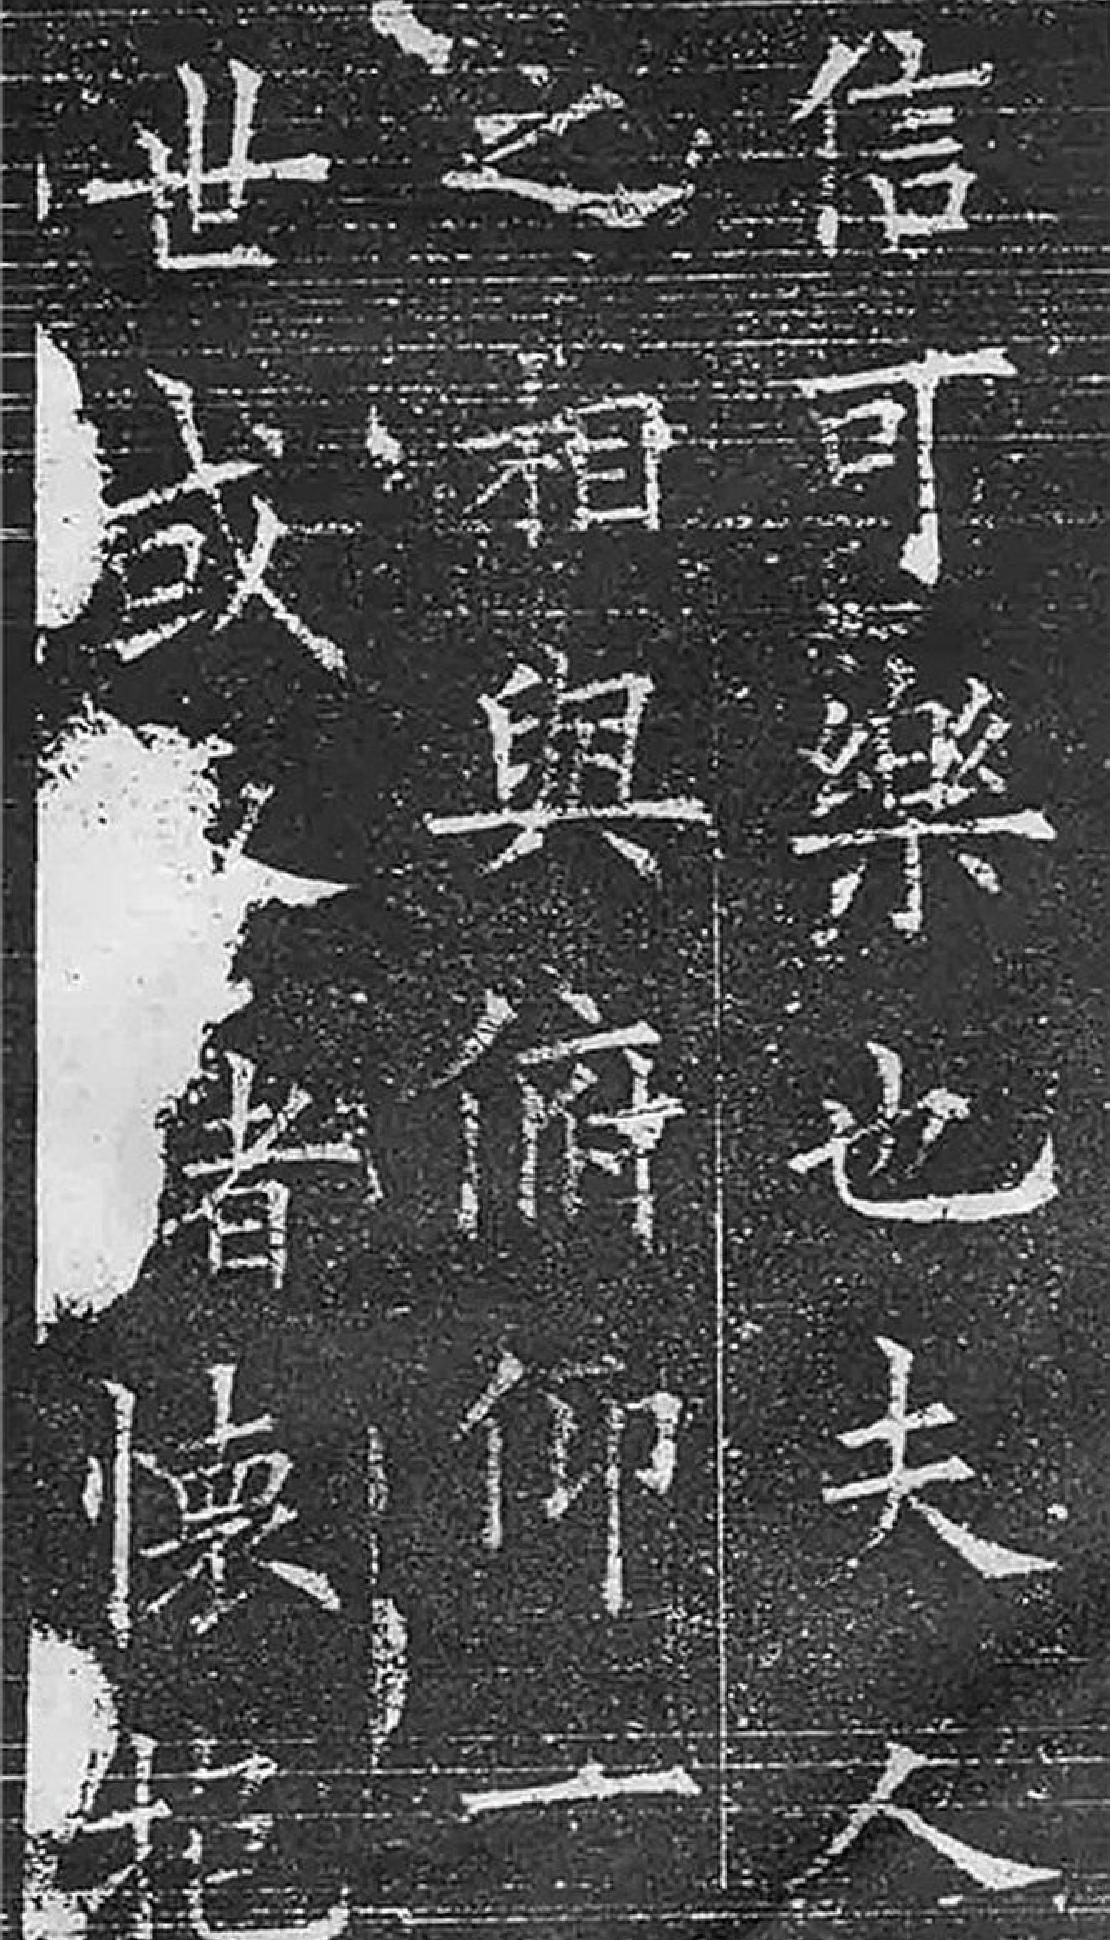 信可樂也夫人
之相與俯仰一
世或諸懷抱